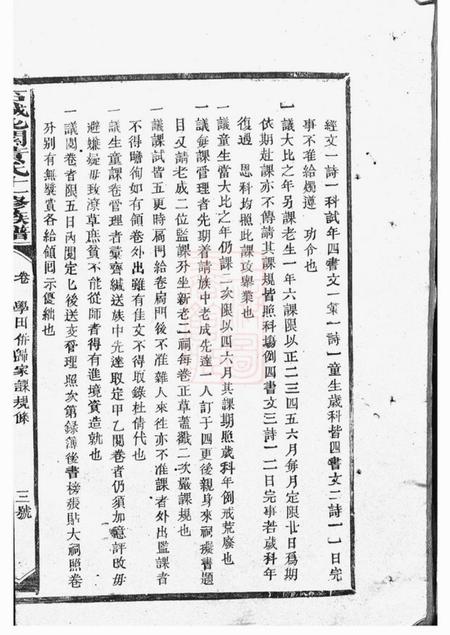 經文一詩一科試年四書文一策一詩一童生歲科皆四書文二詩一一日完
事不准給燭遵　功令也
一議大比之年另課老生一年六課限以正二三四五六月每月定限廿日爲期
依期赴課亦不傳請其課規皆照科塲例四書文三詩一二日完事若歲科年
復遇　恩科均照此課攻舉業也
一議童生當大比之年仍課二次限以四六月其課期照歲科年例戒荒廢也
一議每課管理者先期着請族中老成先達一人訂于四更後親身來祠擬書題
目又請老成二位監課分坐新老二祠每卷正草蓋戳二次嚴課規也
一議課試皆五更時扃門給卷扃門後不准雜人來往亦不准課者外出監課者
不得瞻徇如有領卷外出雖有佳文不得取錄杜倩代也
一議生童課卷管理者彙齊緘送族中先達取定甲乙閱卷者仍須加意評改毋
避嫌疑毋致潦草庶貧不能從師者得有進境資造就也
一議閱卷者限五日內閱定匕後送交管理照次第錄簿後書榜張貼大祠照卷
分別有無獎賞各給領回示優絀也
北關黃氏
修族譜
卷
學田併歸家課規條
三號